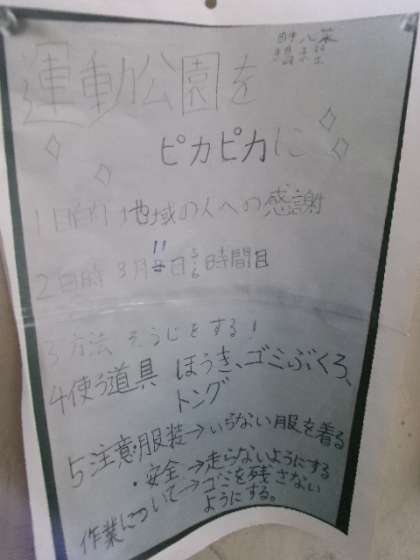 運動公園を
ピカピカに
1目的 地域の人への感謝
2日時 3月11日5,6時間目
3方法 そうじをする!
4使う道具 ほうき、ゴミぶくろ、
トング
5注意・服装→いらない服を着る
・安全→走らないようにする
作業について→ゴミを残さない
ようにする。